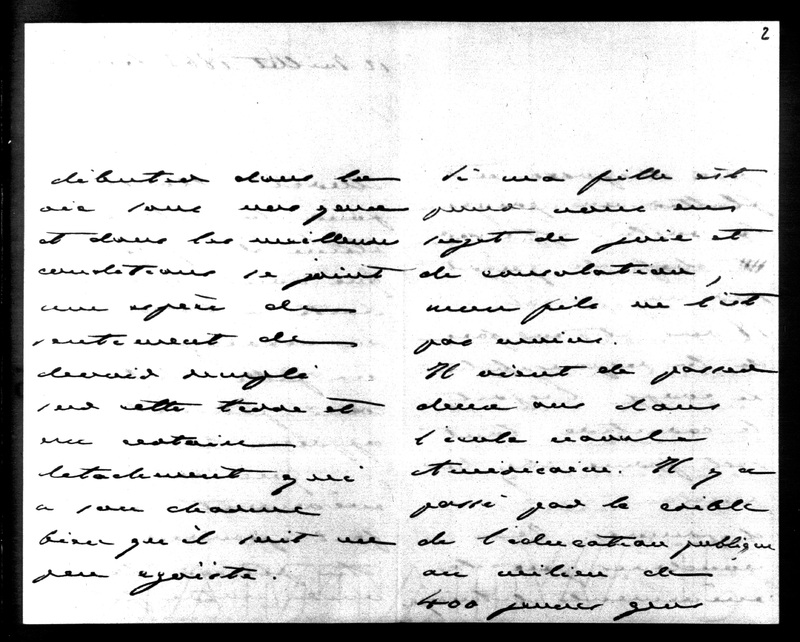 2
débuter dans la
vie sous nos yeux
et dans les meilleures
conditions se joint
une espèce de
sentiment de
devoir rempli
sur cette terre et
un certain
détachement qui
a son charme
bien qu'il soit un
peu egoïste.
Si ma fille est
pour nous un
sujet de joie et
de consolation,
mon fils ne l'est
pas moins.
Il vient de passer
deux ans dans
l'école navale
Américaine. Il y a
passé par le crible
de l'éducation publique
au milieu de
400 jeunes gens